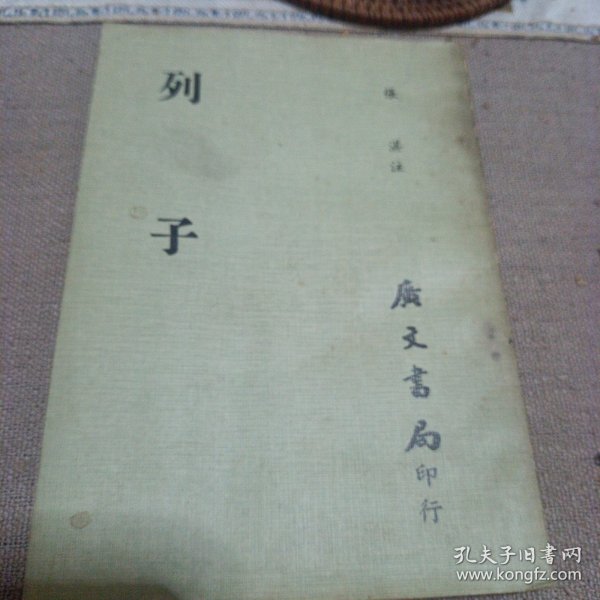 列子
張湛注
廣文書局印行
孔夫子旧書网
www.kongfz.com